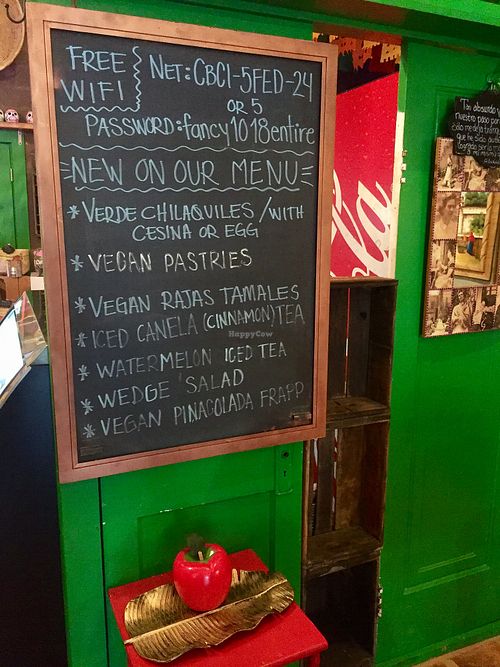 FREE WIFI
NET: CBCI-5FED-24
OR 5
PASSWORD: fancy1018entire
NEW ON OUR MENU
* VERDE CHILAQUILES / WITH
CESINA OR EGG
* VEGAN PASTRIES
* VEGAN RAJAS TAMALES
* ICED CANELA (CINNAMON) TEA
* WATERMELON ICED TEA
* WEDGE SALAD
* VEGAN PINACOLADA FRAPP
HappyCow
la
Tan absurdo y